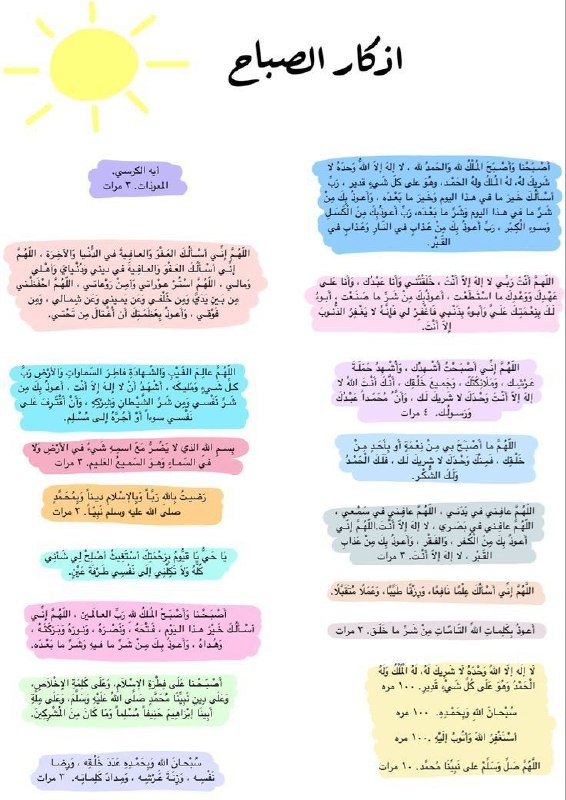 اذكار الصباح
أَصْبَحْنا وَأَصْبَحَ المُلْكُ لله وَالحَمدُ لله ، لا إلهَ إلاّ اللهُ وَحدَهُ لا
شَريكَ لهُ، لهُ المُلكُ ولهُ الحَمْد، وهُوَ على كلّ شَيءٍ قدير ، رَبِّ
أسْأَلُكَ خَيرَ ما في هذا اليوم وَخَيرَ ما بَعْدَه ، وَأَعوذُ بِكَ مِنْ
شَرِّ ما في هذا اليوم وَشَرِّ ما بَعْدَه، رَبِّ أَعوذُبِكَ مِنَ الْكَسَلِ
وَسوءِ الْكِبَر ، رَبِّ أَعوذُ بِكَ مِنْ عَذابٍ في النّارِ وَعَذابٍ في
القَبْر.
اللّهمَّ أَنْتَ رَبِّي لا إلهَ إلاّ أَنْتَ ، خَلَقْتَني وَأَنا عَبْدُك ، وَأَنا عَلى
عَهْدِكَ وَوَعْدِكَ ما اسْتَطَعْت ، أَعوذُبِكَ مِنْ شَرِّ ما صَنَعْت ، أَبوءُ
لَكَ بِنِعْمَتِكَ عَلَيَّ وَأَبوءُ بِذَنْبي فَاغْفِر لي فَإِنَّهُ لا يَغْفِرُ الذُّنوبَ
إِلاّ أَنْتَ.
اللّهُمَّ إِنِّي أَصْبَحْتُ أُشْهِدُك ، وَأُشْهِدُ حَمَلَةَ
عَرْشِك ، وَمَلَائِكَتَك ، وَجَميعَ خَلْقِك ، أَنَّكَ أَنْتَ اللهُ لا
إلهَ إلاّ أَنْتَ وَحْدَكَ لا شَريكَ لَك ، وَأَنَّ مُحَمَّداً عَبْدُكَ
وَرَسولُك. ٤ مرات
اللّهُمَّ ما أَصْبَحَ بي مِنْ نِعْمَةٍ أَو بِأَحَدٍ مِنْ
خَلْقِك ، فَمِنْكَ وَحْدَكَ لا شريكَ لَك ، فَلَكَ الْحَمْدُ
وَلَكَ الشُّكْر.
اللّهُمَّ عافِني في بَدَني ، اللّهُمَّ عافِني في سَمْعي ،
اللّهُمَّ عافِني في بَصَري ، لا إلهَ إلاّ أَنْتَ.اللّهُمَّ إِنّي
أَعوذُ بِكَ مِنَ الْكُفر ، وَالفَقْر ، وَأَعوذُ بِكَ مِنْ عَذابِ
القَبْر ، لا إلهَ إلاّ أَنْتَ. ٣ مرات
اللَّهُمَّ إِنِّي أَسْأَلُكَ عِلْمًا نَافِعًا، وَرِزْقًا طَيِّبًا، وَعَمَلًا مُتَقَبَّلًا.
أَعوذُ بِكَلِماتِ اللّهِ التّامّاتِ مِنْ شَرِّ ما خَلَق. ٣ مرات
لَا إلَه إلّا اللهُ وَحْدَهُ لَا شَرِيكَ لَهُ، لَهُ الْمُلْكُ وَلَهُ
الْحَمْدُ وَهُوَ عَلَى كُلِّ شَيْءٍ قَدِيرِ. ١٠٠ مره
سُبْحـانَ اللهِ وَبِحَمْدِهِ. ١٠٠ مره
أسْتَغْفِرُ اللهَ وَأتُوبُ إلَيْهِ .١٠٠ مره
اللَّهُمَّ صَلِّ وَسَلِّمْ على نَبِيِّنَا مُحمَّد. ١٠ مرات
أيه الكرسي.
المعوذات. ٣ مرات
اللّهُمَّ إِنِّي أسْأَلُكَ العَفْوَ وَالعافِيةَ في الدُّنْيا وَالآخِرَة ، اللّهُمَّ
إِنِّي أسْأَلُكَ العَفْوَ وَالعافِيةَ في ديني وَدُنْيايَ وَأهْلي
وَمالي ، اللّهُمَّ اسْتُرْ عوْراتي وَآمِنْ رَوْعاتي ، اللّهُمَّ احْفَظْني
مِن بَينِ يَدَيَّ وَمِن خَلْفي وَعَن يَميني وَعَن شِمالي ، وَمِن
فَوْقي ، وَأَعوذُ بِعَظَمَتِكَ أَن أُغْتالَ مِن تَحْتي.
اللّهُمَّ عالِمَ الغَيْبِ وَالشّهادَةِ فاطِرَ السّماواتِ وَالأرْضِ رَبَّ
كلِّ شَيءٍ وَمَليكَه ، أَشْهَدُ أَنْ لا إِلهَ إِلاّ أَنْت ، أَعوذُ بِكَ مِن
شَرِّ نَفْسي وَمِن شَرِّ الشَّيْطانِ وَشِرْكِهِ ، وَأَنْ أَقْتَرِفَ عَلى
نَفْسي سوءاً أَوْ أَجُرَّهُ إِلى مُسْلِم.
بِسمِ اللهِ الذي لا يَضُرُّ مَعَ اسمِهِ شَيءٌ في الأرْضِ وَلا
في السّماءِ وَهوَ السّميعُ العَليم. ٣ مرات
رَضيتُ بِاللهِ رَبَّاً وَبِالإسْلامِ ديناً وَبِمُحَمَّدٍ
صلى الله عليه وسلم نَبِيّاً. ٣ مرات
يَا حَيُّ يَا قَيُّومُ بِرَحْمَتِكَ أَسْتَغِيثُ أَصْلِحْ لِي شَأْنِي
كُلَّهُ وَلاَ تَكِلْنِي إِلَى نَفْسِي طَرْفَةَ عَيْنٍ.
أَصْبَحْنا وَأَصْبَحَ المُلكُ للهِ رَبِّ العـالَمين ، اللّهُمَّ إِنِّي
أسْأَلُكَ خَيْرَ هذا اليَوْم ، فَتْحَهُ ، وَنَصْرَهُ ، وَنورَهُ وَبَرَكَتَهُ ،
وَهُداهُ ، وَأَعوذُ بِكَ مِنْ شَرِّ ما فيهِ وَشَرِّ ما بَعْدَه.
أَصْبَحْنَا عَلَى فِطْرَةِ الإِسْلاَمِ، وَعَلَى كَلِمَةِ الإِخْلاَصِ،
وَعَلَى دِينِ نَبِيِّنَا مُحَمَّدٍ صَلَّى اللهُ عَلَيْهِ وَسَلَّمَ، وَعَلَى مِلَّةِ
أَبِينَا إبْرَاهِيمَ حَنِيفاً مُسْلِماً وَمَا كَانَ مِنَ المُشْرِكِينَ.
سُبْحـانَ اللهِ وَبِحَمْدِهِ عَدَدَ خَلْقِه ، وَرِضـا
نَفْسِه ، وَزِنَةَ عَرْشِه ، وَمِدادَ كَلِماتِه. ٣ مرات